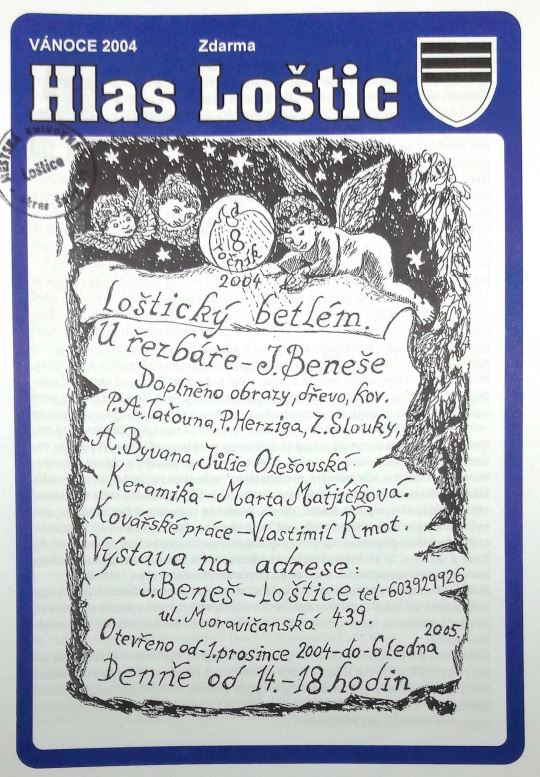 VÁNOCE 2004 Zdarma
Hlas Loštic
MĚSTSKÁ KNIHOVNA
Loštice
okres
8.
ročník
2004
Loštický betlém.
U řezbáře - J. Beneše
Doplněno obrazy, dřevo, kov.
P. A. Taťouna, P. Herziga, Z. Slouky,
A. Byvana, Júlie Olešovská
Keramika - Marta Matjíčková.
Kovářské práce - Vlastimil Řmot.
Výstava na adrese:
J. Beneš - Loštice tel-603929926
ul. Moravičanská 439.
Otevřeno od-1. prosince 2004-do-6 ledna 2005.
Denňe od 14.-18 hodin